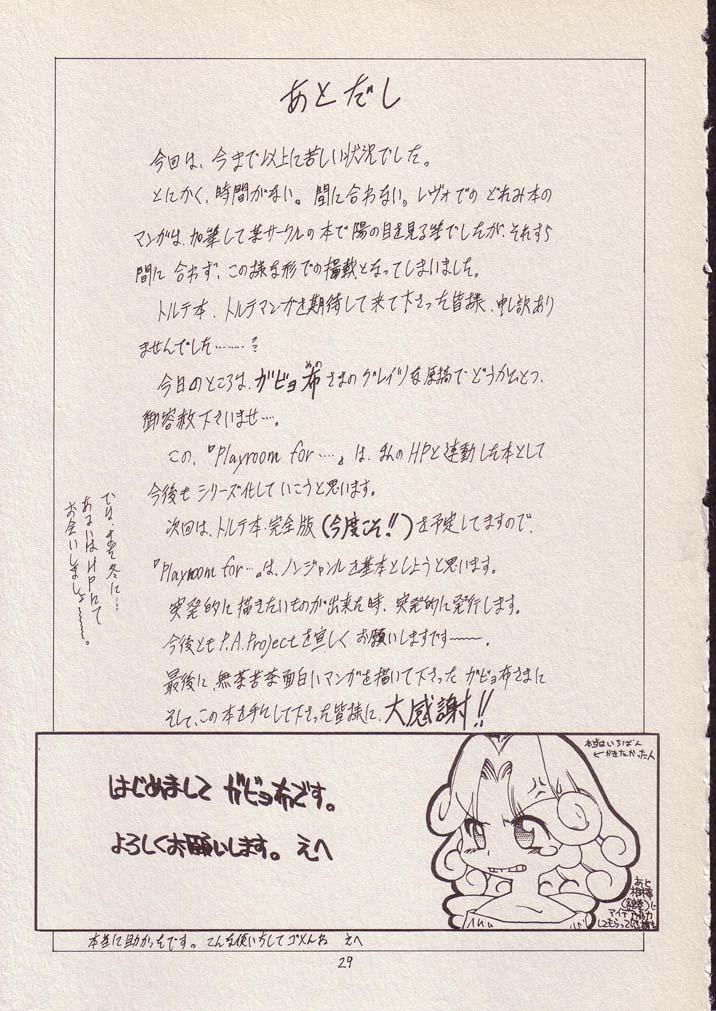 あとだし
今回は、今まで以上に苦しい状況でした。
とにかく、時間がない。間に合わない。レヴォでの どれみ本の
マンガは、加筆して某サークルの本で陽の目を見る筈でしたが、それすら
間に合わず、この様な形での掲載となってしまいました。
トルテ本、トルテマンガを期待して来て下さった皆様、申し訳あり
ませんでした………?
今日のところは、ガビョ布さまのグレイツな原稿でどうかひとつ、
御容赦下さいませ…。
この、『Playroom for……』は、HPと連動した本として
今後もシリーズ化していこうと思います。
次回は、トルテ本・完全版(今度こそ!!)を予定してますので、
『Playroom for…』は、ノンジャンルを基本としようと思います。
突発的に描きたいものが出来た時、突発的に発行します。
今後ともP.A.Projectを宜しくお願いしますです〜〜。
最後に、無茶苦茶面白いマンガを描いて下さった ガビョ布さまに
そして、この本を手にして下さった皆様に、大感謝!!
では、また冬に…
あるいはHPにて
お会いしましょ〜〜。
はじめまして ガビョ布です。
よろしくお願いします。 えへ
本当はいちばん
←かきたかった人
あと
アイデア
本当に助かったです。こんな使いちしてゴメんね えへ
29